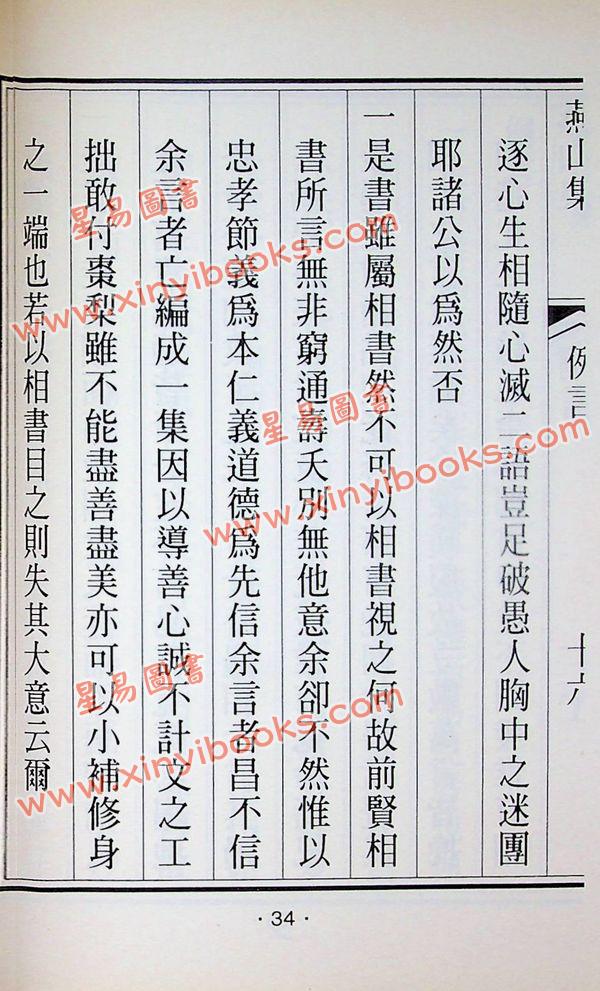 燕山集
例言
十六
逐心生相隨心滅二語豈足破愚人胸中之迷團
耶諸公以爲然否
一是書雖屬相書然不可以相書視之何故前賢相
書所言無非窮通壽夭別無他意余卻不然惟以
忠孝節義爲本仁義道德爲先信余言者昌不信
余言者亡編成一集因以導善心誠不計文之工
拙敢付棗梨雖不能盡善盡美亦可以小補修身
之一端也若以相書目之則失其大意云爾
· 34 ·
星易圖書
www.xinyibooks.com
星易圖書
www.xinyibooks.com
星易圖書
www.xinyibooks.com